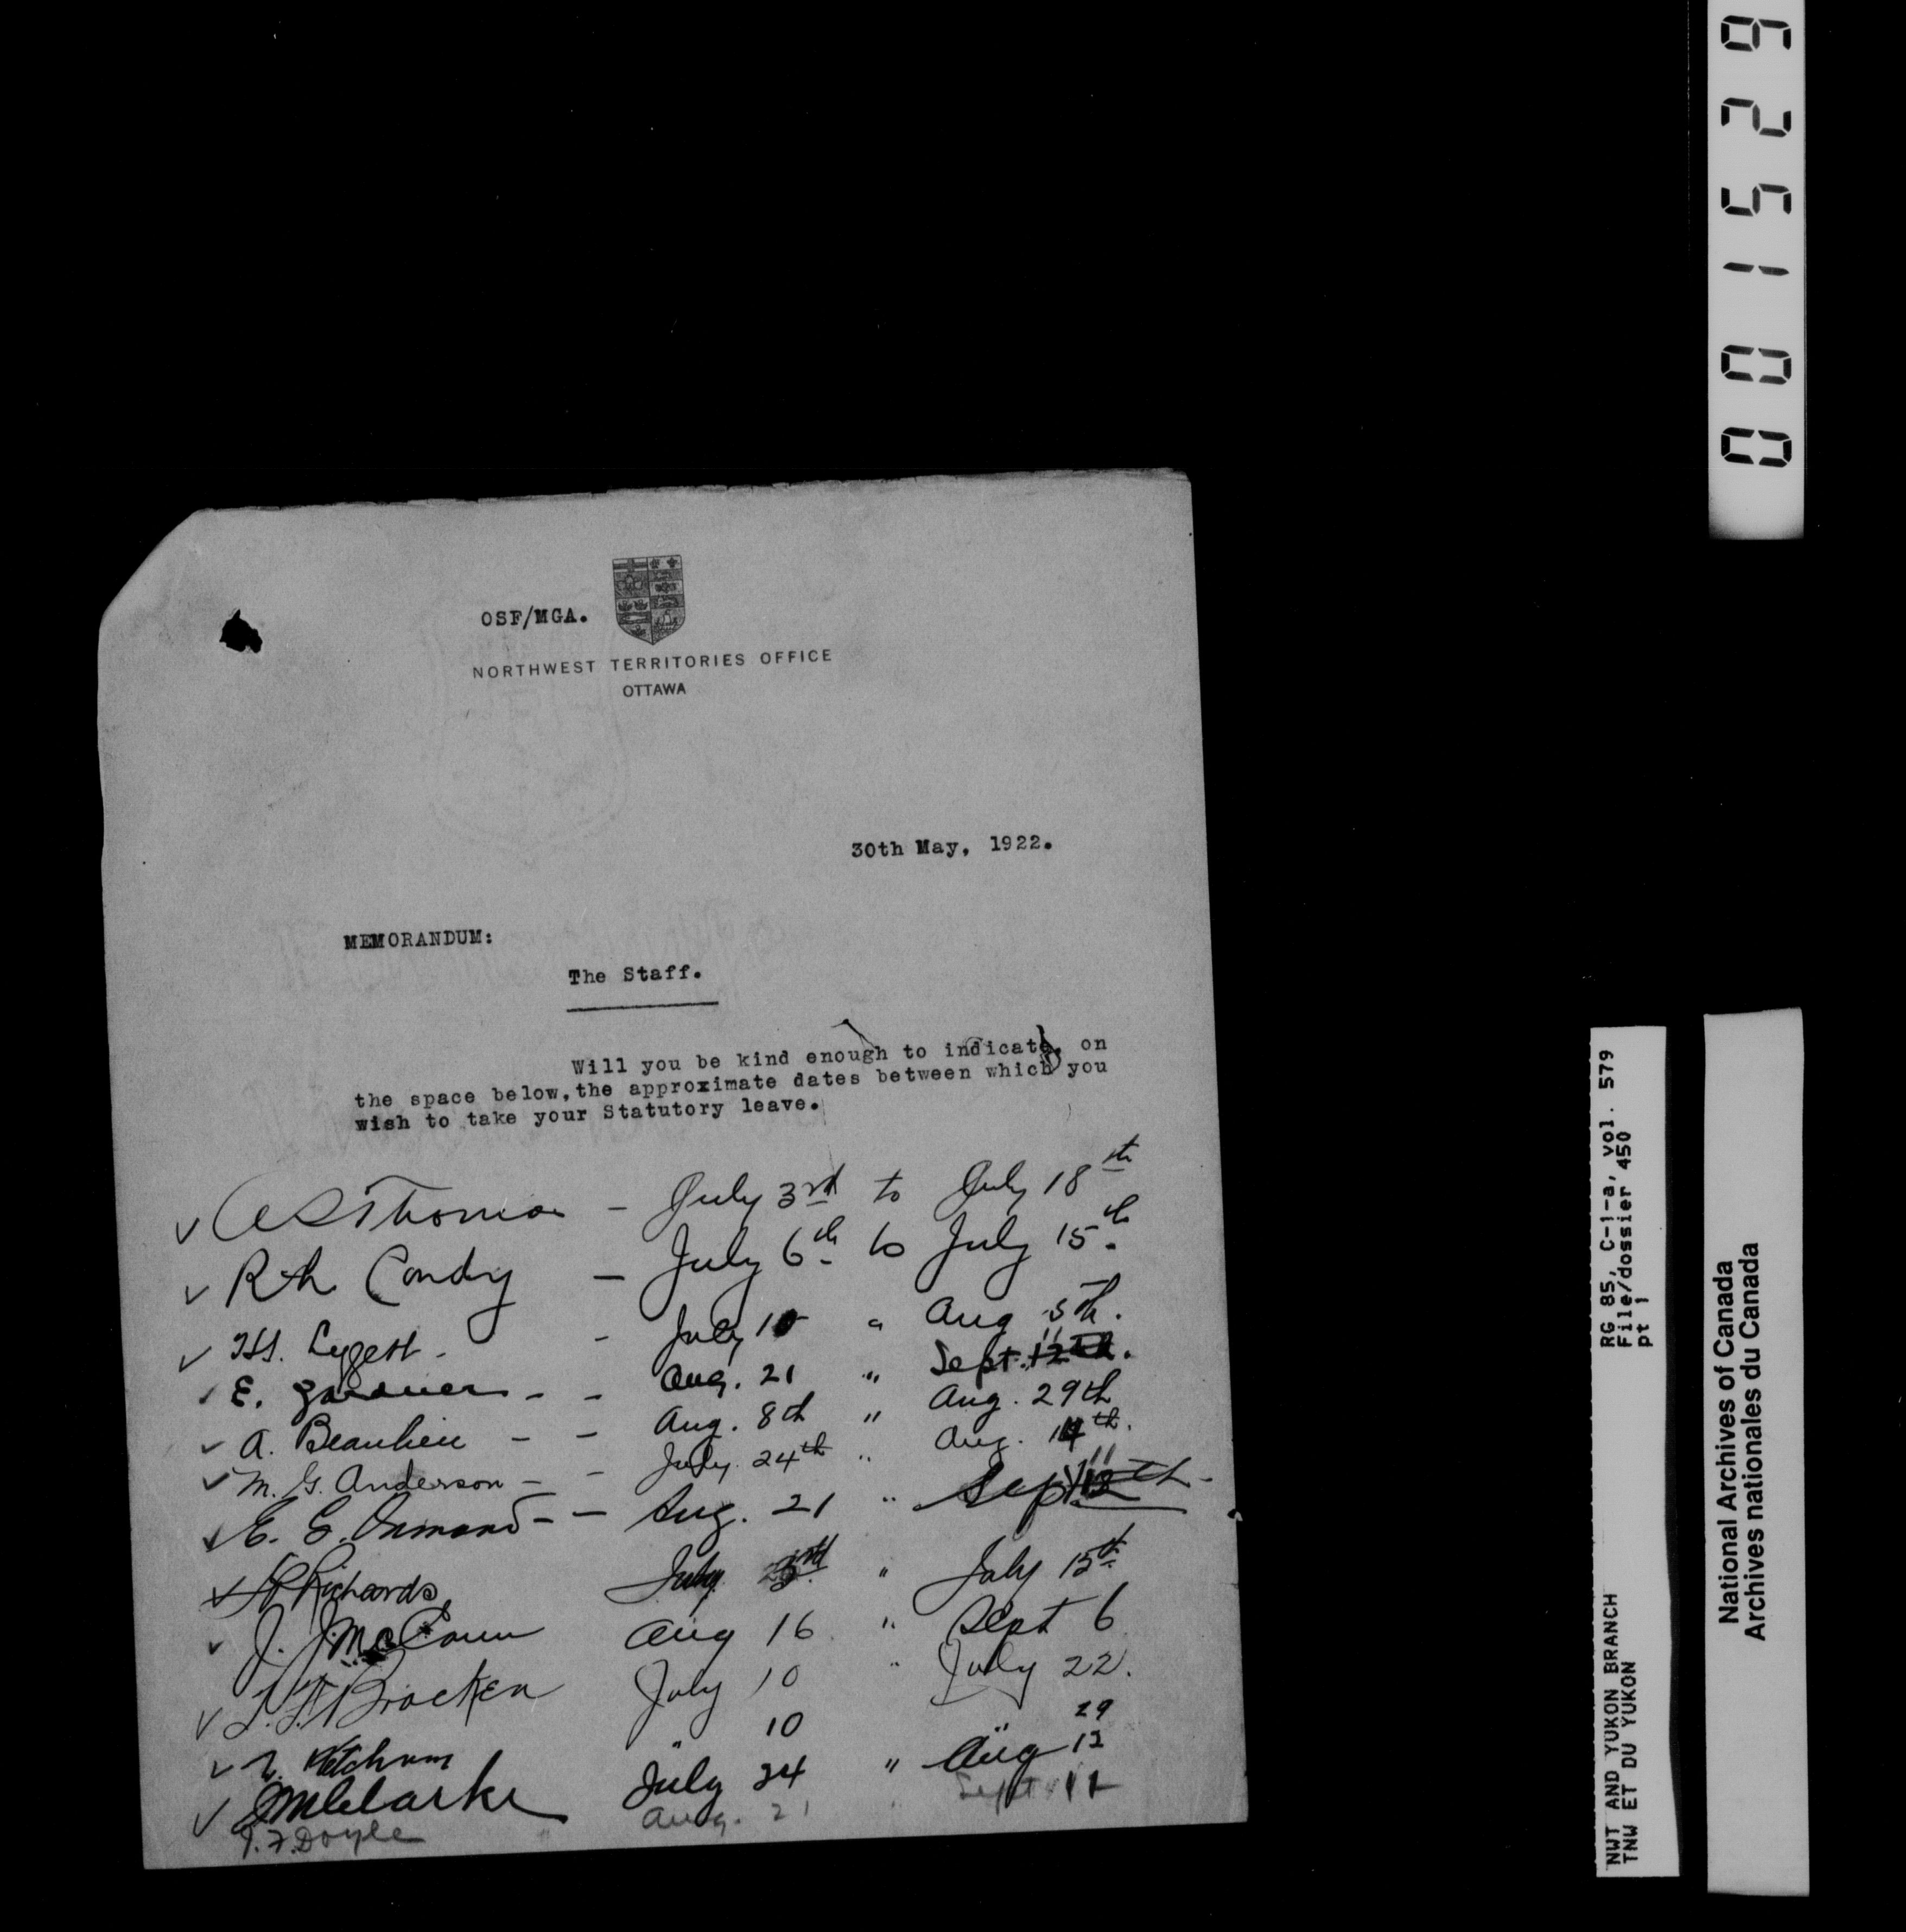 OSF/MGA.
NORTHWEST TERRITORIES OFFICE
OTTAWA
30th May, 1922.
MEMORANDUM:
The Staff.
Will you be kind enough to indicate, on
the space below, the approximate dates between which you
wish to take your Statutory leave.
✓ Thomas – July 3rd to July 18th
✓ Candy – July 6th to July 15th
✓ Lygett. – July 10 " Aug 5th.
✓ E. Gardner – – Aug. 21 " Sept. 11
✓ A. Beaulieu – – Aug. 8th " Aug. 29th
✓ M. G. Anderson – – July 24th " Aug. 14th.
✓ E. E. Ormond – – Aug. 21 " Sept 11
✓ Richards July 3rd " July 15th
✓ J. J. McCann Aug 16 " Sept 6
✓ Bracken July 10 " July 22.
✓ Ketchum " 10 " 29
✓ Clarke July 24 " Aug 12
Doyle Aug. 21 " Sept 11
625100
RG 85, C-1-a, vol. 579
File/dossier 450
pt 1
NWT AND YUKON BRANCH
TNW ET DU YUKON
National Archives of Canada
Archives nationales du Canada